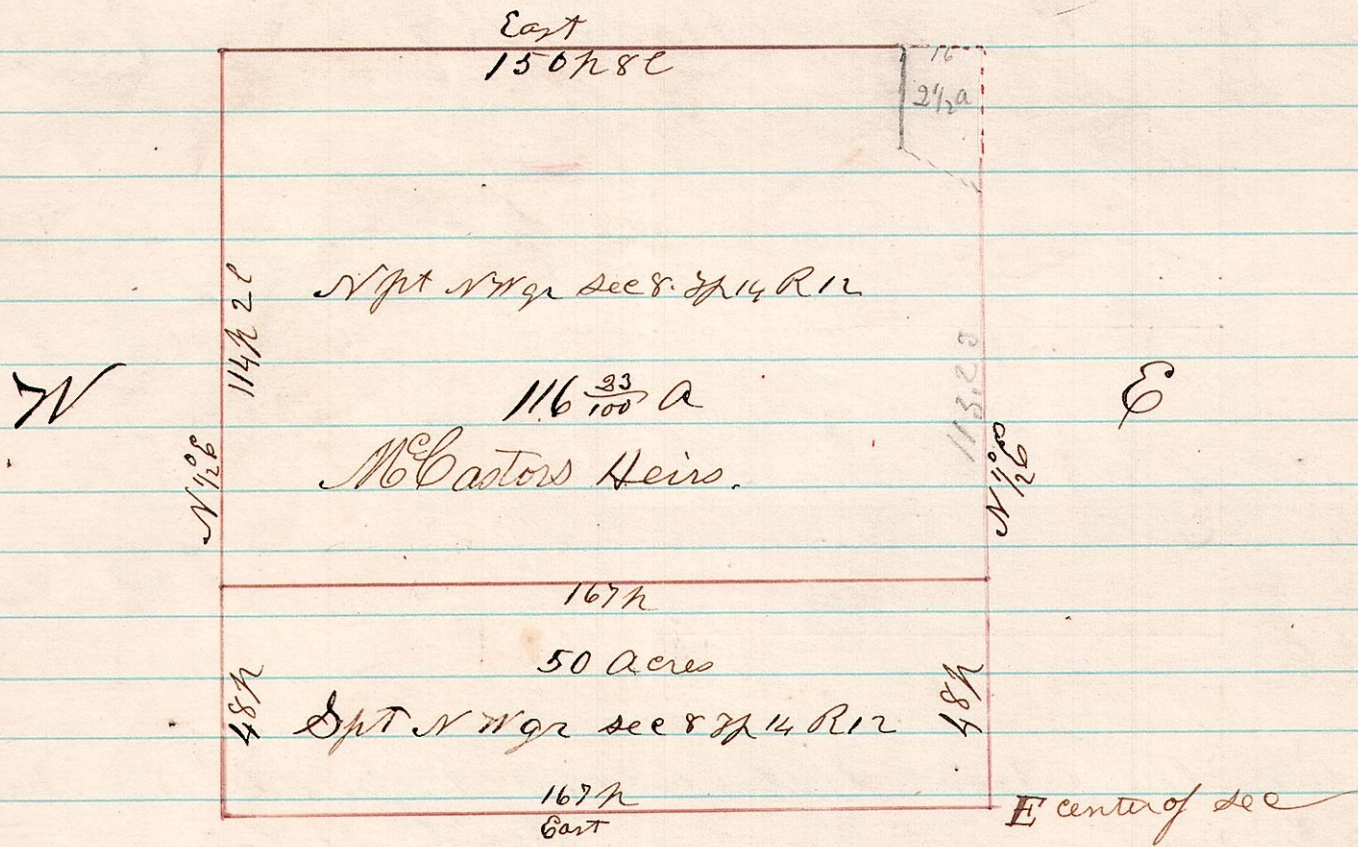 East
150p 8l
16
2 1/2 a
N pt N W qr sec 8. Tp 14 R 12
114p 2l
W
116 23/100 A
113.23
E
N 1/2° E
McCastors Heirs.
N 1/2° E
167p
50 Acres
48p
S pt N W qr sec 8 Tp 14 R 12
48p
167p
East
E center of sec